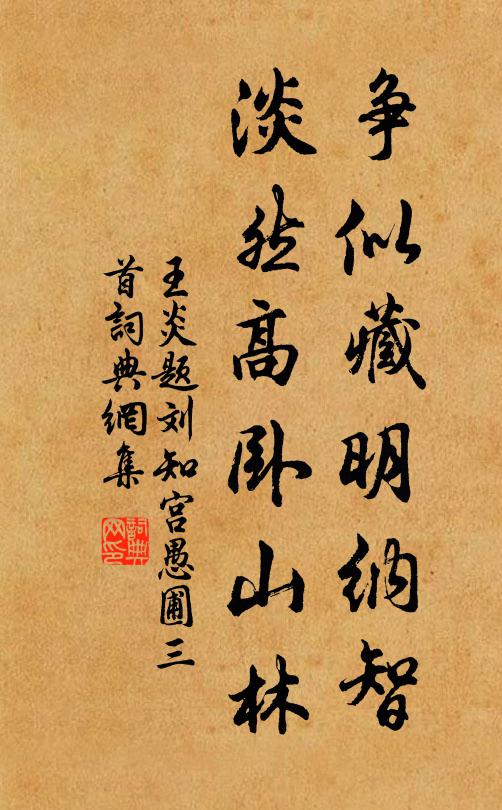 争似藏明纳智
淡然高卧山林
王炎题刘知宫愚圃三
首詞典網集
詞典网印